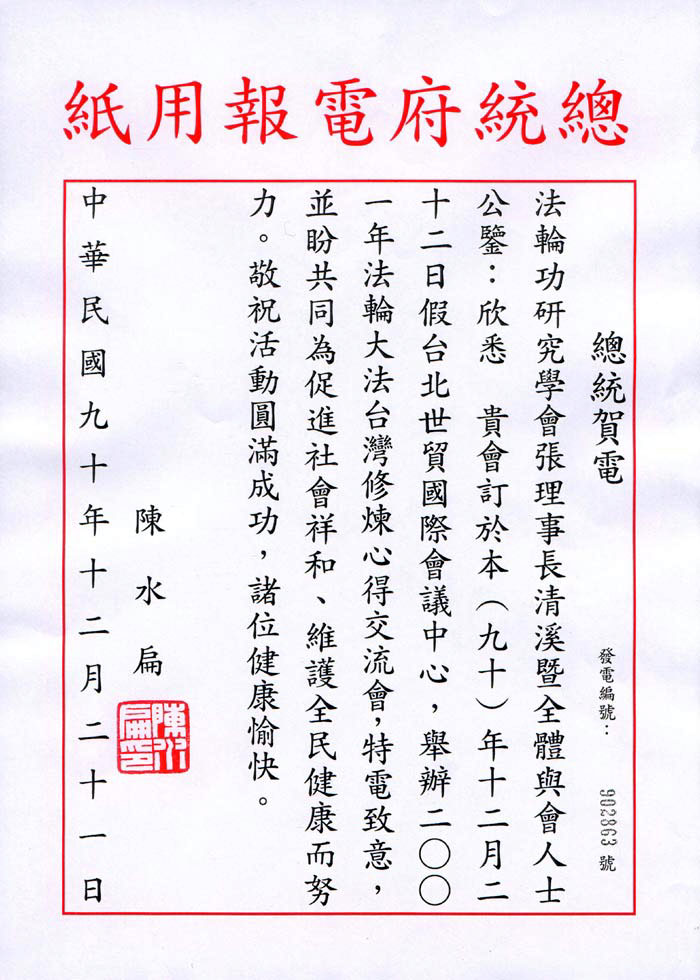 總統府電報用紙
總統賀電
發電編號：902863號
法輪功研究學會張理事長清溪暨全體與會人士
公鑒：欣悉　貴會訂於本（九十）年十二月二
十二日假台北世貿國際會議中心，舉辦二〇〇
一年法輪大法台灣修煉心得交流會，特電致意，
並盼共同為促進社會祥和、維護全民健康而努
力。敬祝活動圓滿成功，諸位健康愉快。
陳水扁
陳水扁印
中華民國九十年十二月二十一日